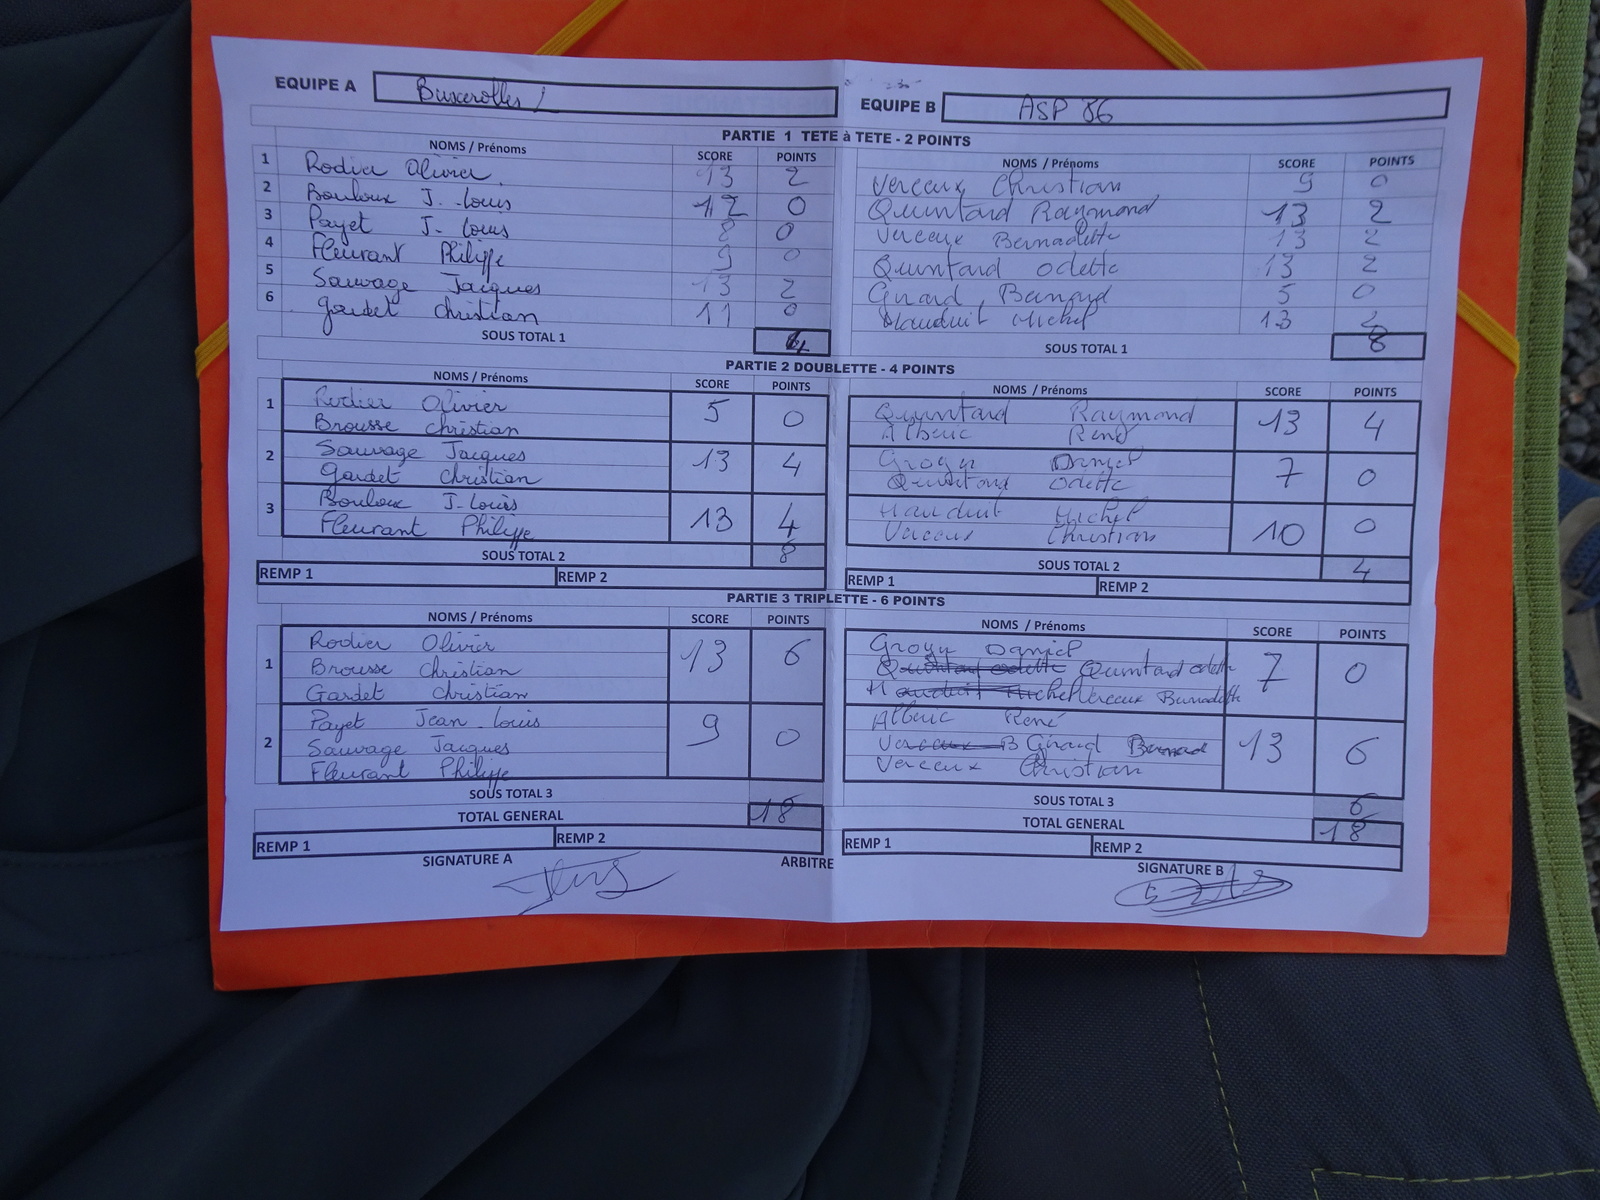 EQUIPE A Buxerolles 1 EQUIPE B ASP 86
PARTIE 1 TETE à TETE - 2 POINTS
NOMS / Prénoms SCORE POINTS NOMS / Prénoms SCORE POINTS
1 Rodier Olivier 13 2 Verceux Christian 9 0
2 Bouloux J. Louis 12 0 Quintard Raymond 13 2
3 Payet J. Louis 8 0 Verceux Bernadette 13 2
4 Fleurant Philippe 9 0 Quintard Odette 13 2
5 Sauvage Jacques 13 2 Girard Bernard 5 0
6 Gardet Christian 11 0 Mauduit Michel 13 2
SOUS TOTAL 1 4 SOUS TOTAL 1 8
PARTIE 2 DOUBLETTE - 4 POINTS
NOMS / Prénoms SCORE POINTS NOMS / Prénoms SCORE POINTS
1 Rodier Olivier 5 0 Quintard Raymond 13 4
Brousse Christian Alberic René
2 Sauvage Jacques 13 4 Daniel 7 0
Gardet Christian Quintard Odette
3 Bouloux J-Louis 13 4 Mauduit Michel 10 0
Fleurant Philippe Verceux Christian
SOUS TOTAL 2 8 SOUS TOTAL 2 4
REMP 1 REMP 2 REMP 1 REMP 2
PARTIE 3 TRIPLETTE - 6 POINTS
NOMS / Prénoms SCORE POINTS NOMS / Prénoms SCORE POINTS
1 Rodier Olivier 13 6 Daniel 7 0
Brousse Christian Quintard Odette Quintard Odette
Gardet Christian Mauduit Michel Verceux Bernadette
2 Payet Jean-Louis 9 0 Alberic René 13 6
Sauvage Jacques Verceux B Girard Bernard
Fleurant Philippe Verceux Christian
SOUS TOTAL 3 SOUS TOTAL 3 6
TOTAL GENERAL 18 TOTAL GENERAL 18
REMP 1 REMP 2 REMP 1 REMP 2
SIGNATURE A ARBITRE SIGNATURE B